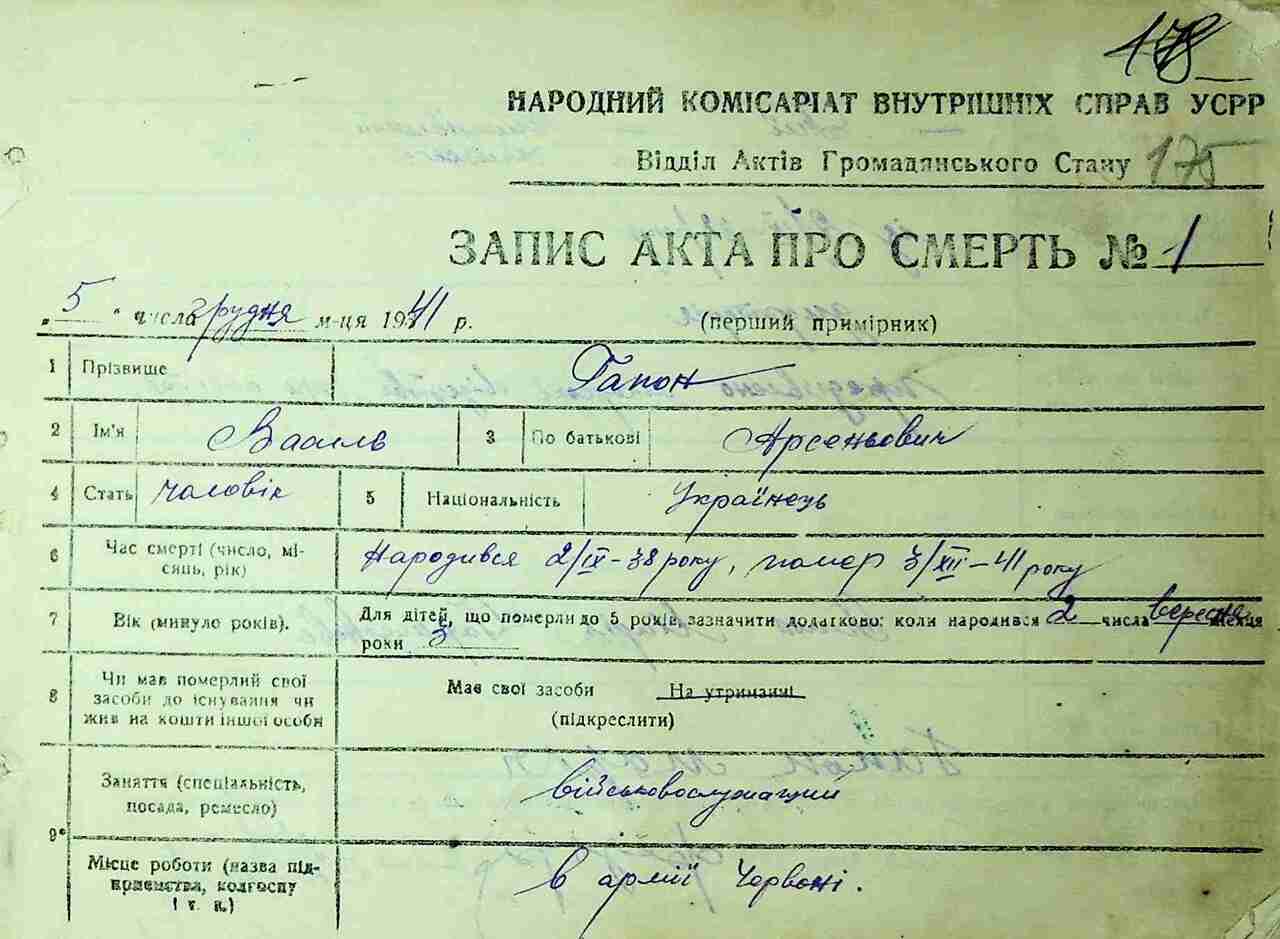 178
НАРОДНИЙ КОМІСАРІАТ ВНУТРІШНІХ СПРАВ УСРР
Відділ Актів Громадянського Стану 175
ЗАПИС АКТА ПРО СМЕРТЬ № 1
„ 5 " числа грудня м-ця 1941 р. (перший примірник)
1 Прізвище Гапон
2 Ім'я Василь 3 По батькові Арсеньович
4 Стать чоловік 5 Національність Українець
6 Час смерті (число, мі-
сяць, рік) Народився 2/IX-38 року, помер 3/XII-41 року
7 Вік (минуло років). Для дітей, що померли до 5 років, зазначити додатково: коли народився 2 числа вересня місяця
роки 3
8 Чи мав померлий свої
засоби до існування чи
жив на кошти іншої особи Має свої засоби На утриманні
(підкреслити)
9 Заняття (спеціальність,
посада, ремесло) військовослужащий
Місце роботи (назва під-
приємства, колгоспу
і т. п.) в армії Червоні.